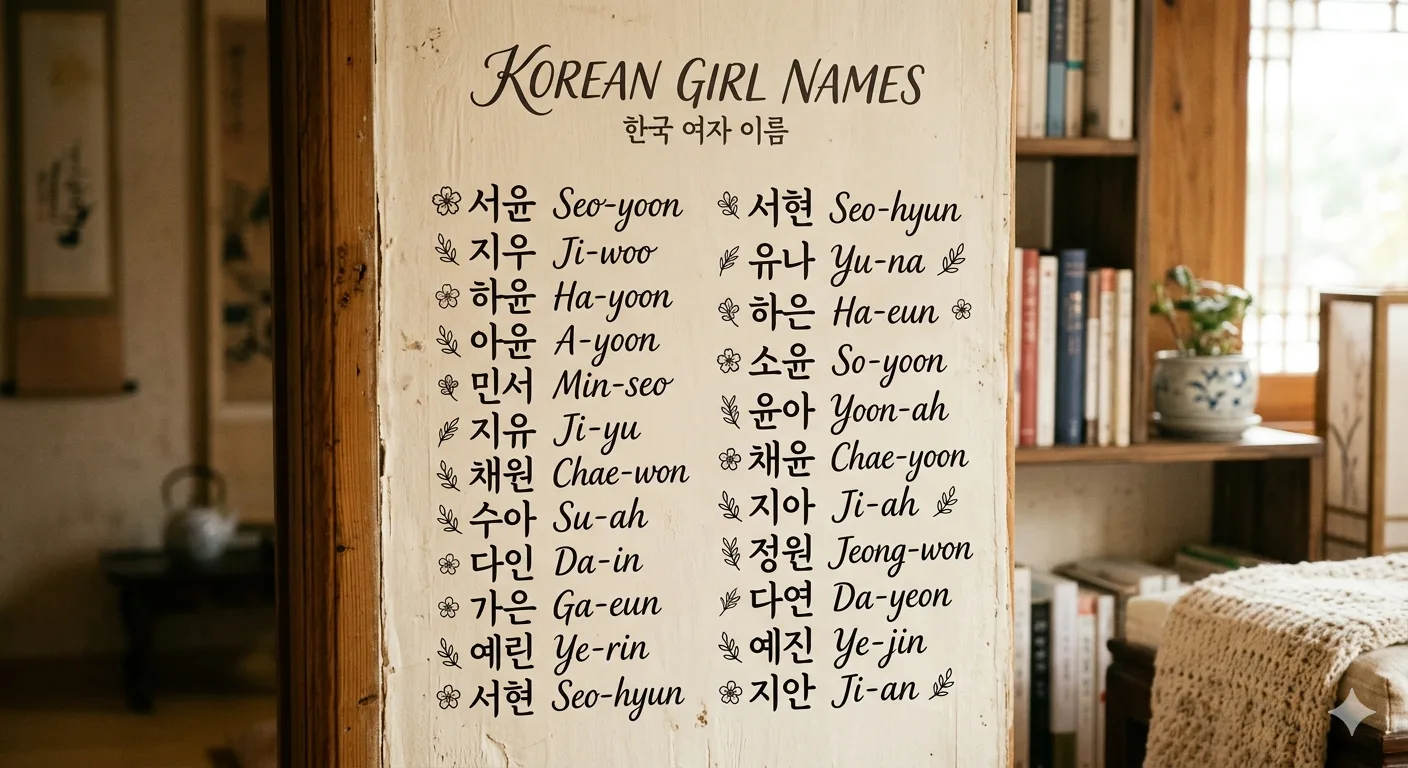 KOREAN GIRL NAMES
한국 여자 이름
서윤 Seo-yoon
지우 Ji-woo
하윤 Ha-yoon
아윤 A-yoon
민서 Min-seo
지유 Ji-yu
채원 Chae-won
수아 Su-ah
다인 Da-in
가은 Ga-eun
예린 Ye-rin
서현 Seo-hyun
서현 Seo-hyun
유나 Yu-na
하은 Ha-eun
소윤 So-yoon
윤아 Yoon-ah
채윤 Chae-yoon
지아 Ji-ah
정원 Jeong-won
다연 Da-yeon
예진 Ye-jin
지안 Ji-an